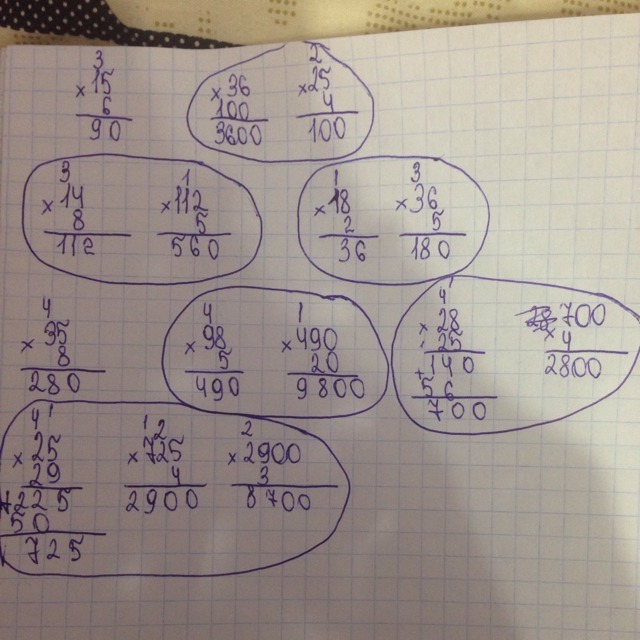 3
×15
6
90
×36
100
3600
2
×25
4
100
3
×14
8
112
1
×112
5
560
1
×18
2
36
3
×36
5
180
4
×35
8
280
4
×98
5
490
1
×490
20
9800
4 1
×28
25
140
+56
700
700
×4
2800
4 1
×25
29
225
50
725
1 2
×725
4
2900
2
×2900
3
8700